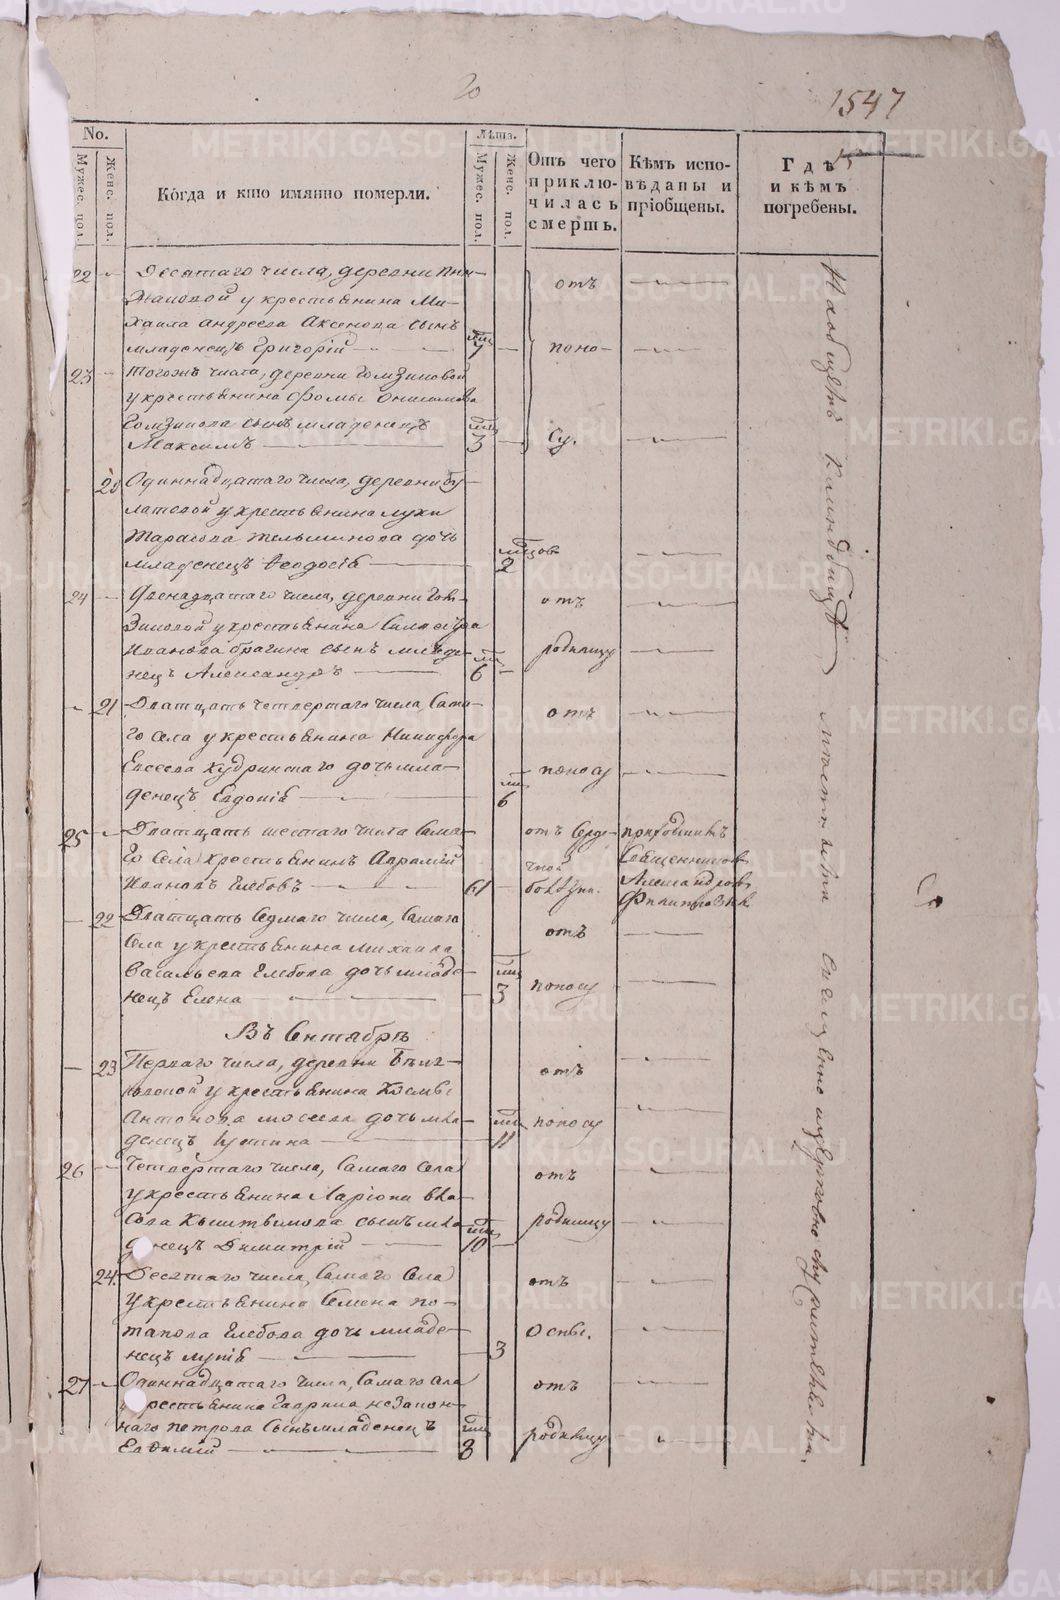 20
1547
15
No.
Мужес. пол.
Женс. пол.
Когда и кто имянно померли.
Лѣта.
Мужес. пол.
Женс. пол.
Отъ чего приключилась смерть.
Кѣмъ исповѣданы и пріобщены.
Гдѣ и кѣмъ погребены.
22
Десятаго числа, деревни
у крестьянина Ми-
хаила Андреева Аксенова сынъ
младенецъ Григорій
7
отъ
поно-
23
тогожъ числа, деревни Гомзиковой
у крестьянина Фомы
сынъ младенецъ
Максимъ
3
су.
20
Одиннадцатаго числа, деревни Бу-
латовой у крестьянина Луки
Тарасова дочь
младенецъ Феодосія
мцов
2
24
Двенадцатаго числа, деревни
у крестьянина
Иванова Брагина сынъ младе-
нецъ Александръ
6
отъ
родимцу
21
Дватцать четвертаго числа, сама-
го села у крестьянина Никифора
Евсеева Кудринскаго дочь мла-
денецъ Евдокія
6
отъ
поносу
25
Дватцать шестаго числа сама-
го села крестьянинъ Авраамій
Ивановъ Глебовъ
61
отъ серде-
чной
болезни.
приходскимъ
Священникомъ
Александромъ
22
Дватцать седмаго числа, самаго
села у крестьянина Михаила
Васильева Глебова дочь младе-
нецъ Елена
3
отъ
поносу
Въ Сентябрѣ
23
Перваго числа, деревни
у крестьянина Козмы
Антонова Мосеева дочь мла-
денецъ Устина
11
отъ
поносу
26
Четвертаго числа, самаго села
у крестьянина Ларіона Вла-
сова сынъ мла-
денецъ Димитрій
10
отъ
родимцу
24
Десятаго числа, самаго села
у крестьянина Семена По-
тапова Глебова дочь младе-
нецъ Лукія
3
отъ
оспы.
27
Одиннадцатаго числа, самаго села
у крестьянина Гаврила незакон-
наго Петрова сынъ младенецъ
Евфимій
8
отъ
родимцу
На общемъ кладбищѣ
METRIKI.GASO-URAL.RU